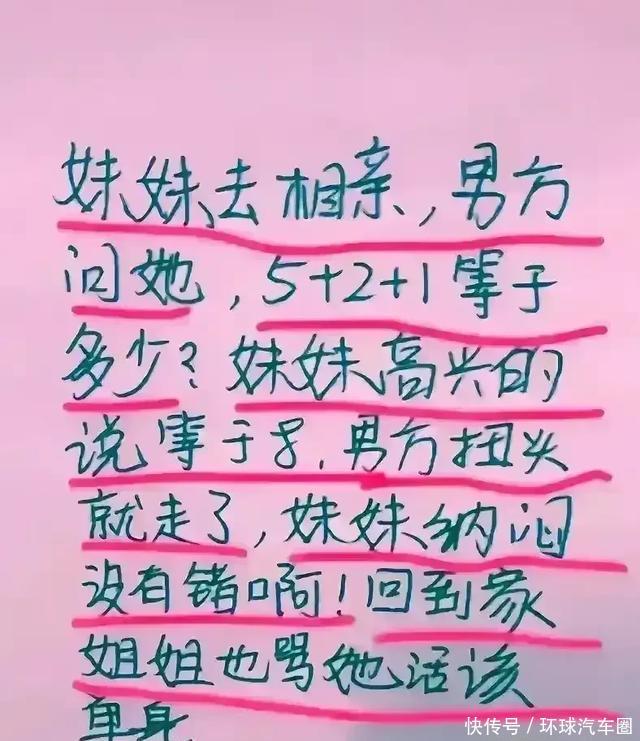 妹妹去相亲，男方
问她，5+2+1等于
多少？妹妹高兴的
说等于8，男方扭头
就走了，妹妹纳闷
没有错啊！回到家
姐姐也骂她活该
单身
快传号／环球汽车圈